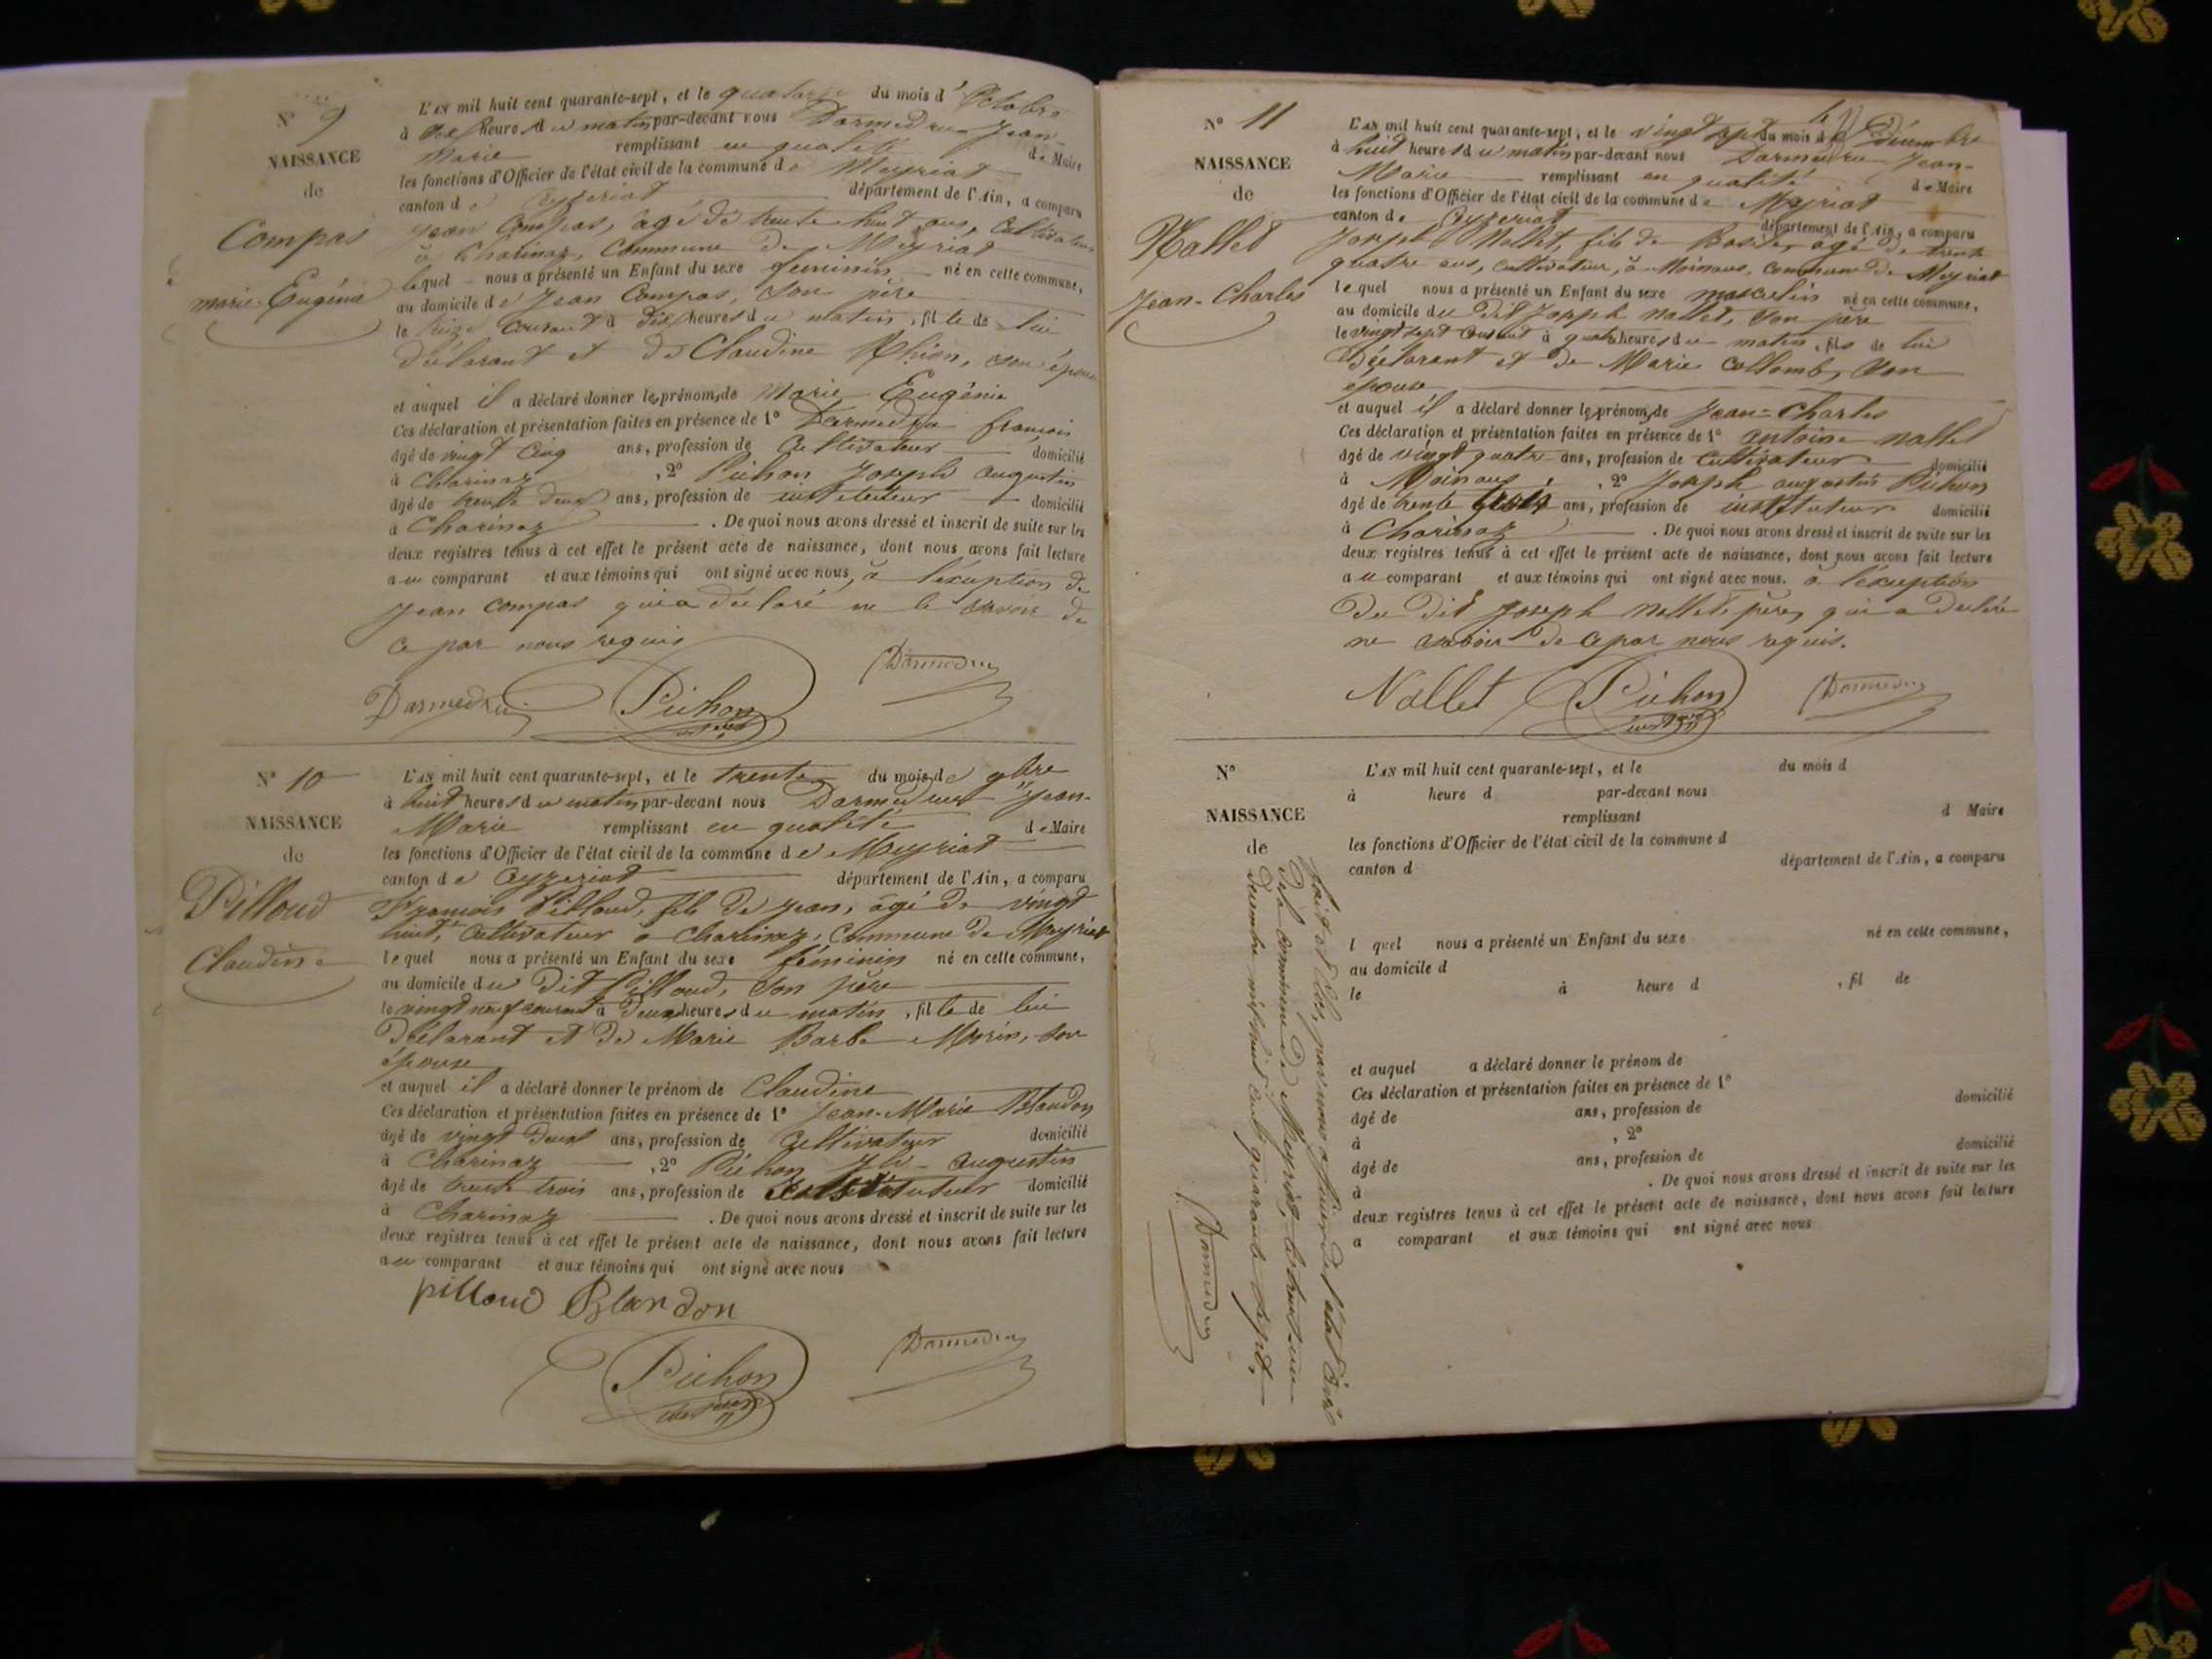 N° 9
NAISSANCE
de
Compas
Marie-Eugénie
L'AN mil huit cent quarante-sept, et le quatorze du mois d'Octobre
à dix heures du matin par-devant nous Darmedru Jean-
Marie remplissant en qualité de Maire
les fonctions d'Officier de l'état civil de la commune de Meyriat
canton de Ceyzeriat département de l'Ain, a comparu
Jean Compas, âgé de trente huit ans, Cultivateur
à Charinaz, Commune de Meyriat
lequel nous a présenté un Enfant du sexe féminin né en cette commune,
au domicile de Jean Compas, son père
le treize courant à dix heures du matin, fille de lui
Déclarant et de Claudine son épouse
et auquel il a déclaré donner les prénoms de Marie Eugénie
Ces déclaration et présentation faites en présence de 1° Darmedru françois
âgé de vingt cinq ans, profession de Cultivateur domicilié
à Charinaz, 2° Pichon Joseph augustin
âgé de trente deux ans, profession de instituteur domicilié
à Charinaz. De quoi nous avons dressé et inscrit de suite sur les
deux registres tenus à cet effet le présent acte de naissance, dont nous avons fait lecture
au comparant et aux témoins qui ont signé avec nous, à l'éxception de
Jean Compas qui a déclaré ne le savoir de
ce par nous requis
Darmedru Pichon Darmedru
N° 10
NAISSANCE
de
Pilloud
Claudine
L'AN mil huit cent quarante-sept, et le trente du mois de 9bre
à huit heures du matin par-devant nous Darmedru Jean-
Marie remplissant en qualité de Maire
les fonctions d'Officier de l'état civil de la commune de Meyriat
canton de Ceyzeriat département de l'Ain, a comparu
François Pilloud, fils de Jean, âgé de vingt
huit, Cultivateur à Charinaz, Commune de Meyriat
lequel nous a présenté un Enfant du sexe féminin né en cette commune,
au domicile du Dit Pilloud, son père
le vingt neuf courant à deux heures du matin, fille de lui
Déclarant et de Marie Barbe Morin, son
épouse
et auquel il a déclaré donner le prénom de Claudine
Ces déclaration et présentation faites en présence de 1° Jean-Marie Blandon
âgé de vingt deux ans, profession de Cultivateur domicilié
à Charinaz, 2° Pichon Jh augustin
âgé de trente trois ans, profession de Instituteur domicilié
à Charinaz. De quoi nous avons dressé et inscrit de suite sur les
deux registres tenus à cet effet le présent acte de naissance, dont nous avons fait lecture
au comparant et aux témoins qui ont signé avec nous
pilloud Blandon
Pichon Darmedru
N° 11
NAISSANCE
de
Nallet
Jean-Charles
L'AN mil huit cent quarante-sept, et le vingt sept du mois de Décembre
à huit heures du matin par-devant nous Darmedru Jean-
Marie remplissant en qualité de Maire
les fonctions d'Officier de l'état civil de la commune de Meyriat
canton de Ceyzeriat département de l'Ain, a comparu
Joseph Nallet, fils de âgé de trente
quatre ans, cultivateur, à Moinans, commune de Meyriat
lequel nous a présenté un Enfant du sexe masculin né en cette commune,
au domicile du Dit Joseph Nallet, son père
le vingt sept courant à quatre heures du matin, fils de lui
Déclarant et de Marie Collomb, son
épouse
et auquel il a déclaré donner les prénoms de Jean-Charles
Ces déclaration et présentation faites en présence de 1° antoine Nallet
âgé de vingt quatre ans, profession de Cultivateur domicilié
à Moinans, 2° Joseph augustin Pichon
âgé de trente trois ans, profession de instituteur domicilié
à Charinaz. De quoi nous avons dressé et inscrit de suite sur les
deux registres tenus à cet effet le présent acte de naissance, dont nous avons fait lecture
au comparant et aux témoins qui ont signé avec nous. à l'éxception
Du Dit Joseph Nallet, père, qui a déclaré
ne savoir de ce par nous requis.
Nallet Pichon Darmedru
N°
NAISSANCE
de
L'AN mil huit cent quarante-sept, et le du mois d
à heure d par-devant nous
remplissant d Maire
les fonctions d'Officier de l'état civil de la commune d
canton d département de l'Ain, a comparu
l quel nous a présenté un Enfant du sexe né en cette commune,
au domicile d
le à heure d , fil de
et auquel a déclaré donner le prénom de
Ces déclaration et présentation faites en présence de 1°
âgé de ans, profession de domicilié
à , 2°
âgé de ans, profession de domicilié
à . De quoi nous avons dressé et inscrit de suite sur les
deux registres tenus à cet effet le présent acte de naissance, dont nous avons fait lecture
a comparant et aux témoins qui ont signé avec nous
fait et clos, par nous officier de l'état Civil
De la commune de Meyriat, le trente un
décembre mil huit cent quarante sept.
Darmedru